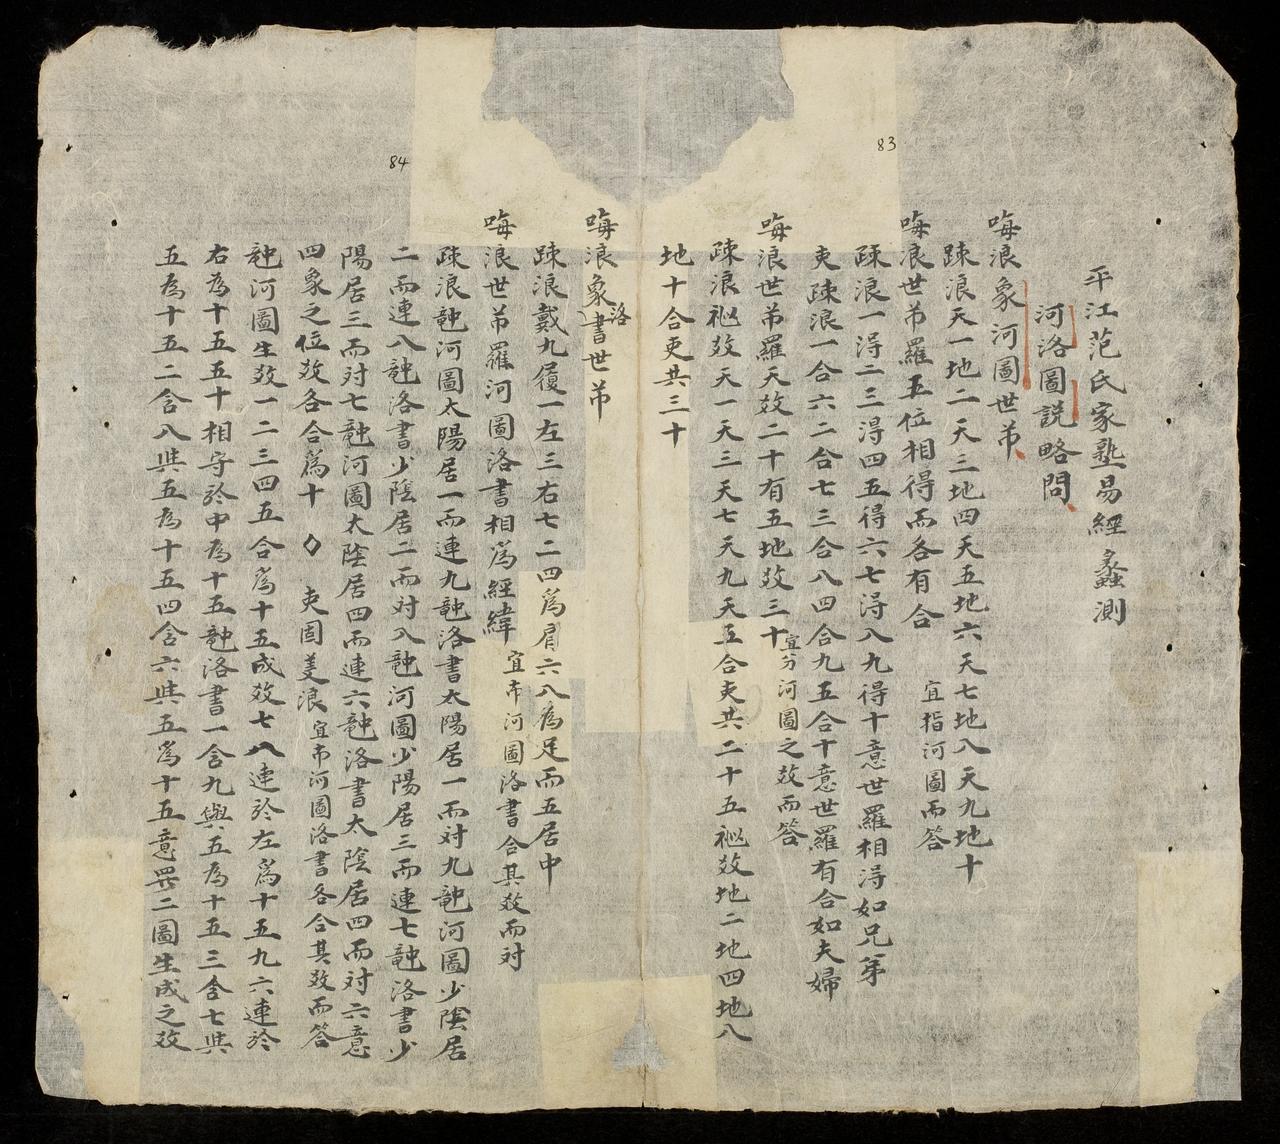 平江范氏家塾易經蠡測
河洛圖說略問
晦浪象河圖世芇
疎浪天一地二天三地四天五地六天七地八天九地十
晦浪世芇羅五位相得而各有合 宜指河圖而答
疎浪一淂二三淂四五得六七淂八九得十意世羅相淂如兄弟
吏疎浪一合六二合七三合八四合九五合十意世羅有合如夫婦
晦浪世芇羅天数二十有五地数三十 宜分河圖之数而答
疎浪祂数天一天三天七天九天五合吏共二十五祂数地二地四地八
地十合吏共三十
晦浪象洛書世芇
疎浪戴九履一左三右七二四為肩六八為足而五居中
晦浪世芇羅河圖洛書相為經緯 宜布河圖洛書合其数而対
疎浪河圖太陽居一而連九洛書太陽居一而対九河圖少陰居
二而連八洛書少陰居二而対八河圖少陽居三而連七洛書少
陽居三而対七河圖太陰居四而連六洛書太陰居四而対六意
四象之位数各合為十 吏固羑浪 宜布河圖洛書各合其数而答
河圖生数一二三四五合為十五成数七八連於左為十五九六連於
右為十五五十相守於中為十五洛書一含九與五為十五三含七共
五為十五二含八共五為十五四含六共五為十五意畏二圖生成之数
83
84